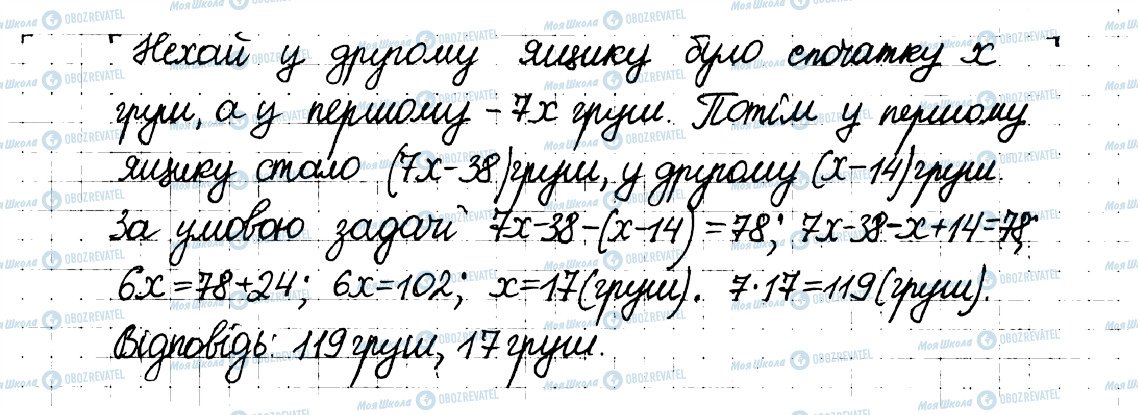 Нехай у другому ящику було спочатку x
груш, а у першому - 7x груш. Потім у першому
ящику стало (7x-38) груш, у другому (x-14) груш.
За умовою задачі 7x-38-(x-14)=78; 7x-38-x+14=78;
6x=78+24; 6x=102; x=17(груш). 7·17=119(груш).
Відповідь: 119 груш, 17 груш.